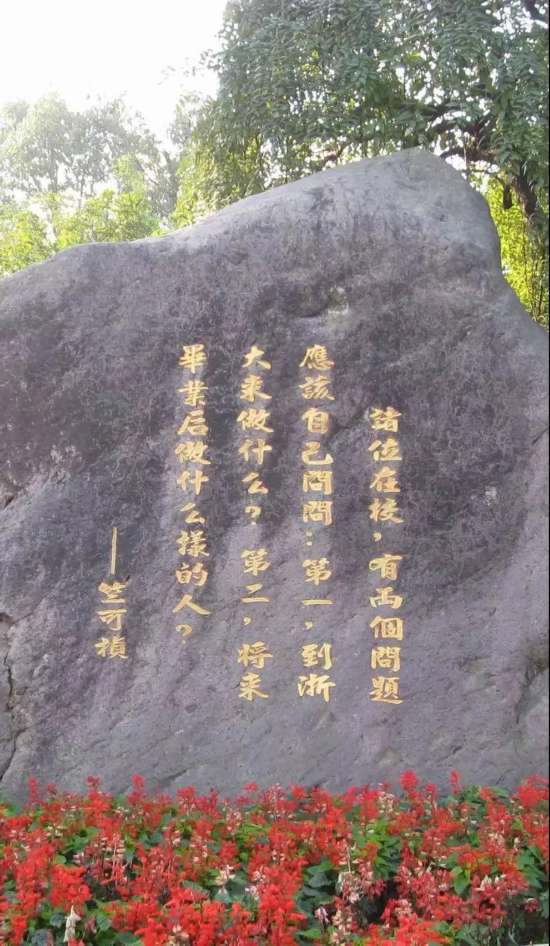 諸位在校,有兩個問題
應該自己問問:第一,到浙
大來做什么?第二,将来
畢業后做什么樣的人?
——竺可禎